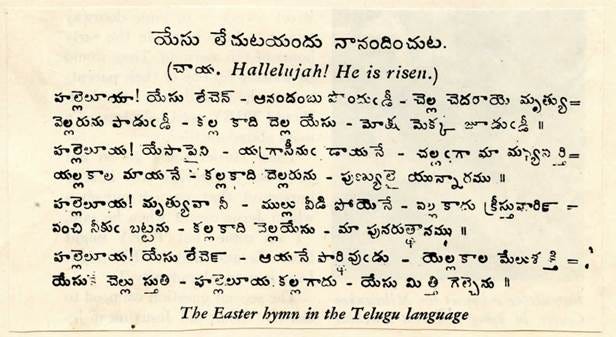 యేసు లేచుటయందు నానందించుట.
(చాయ. Hallelujah! He is risen.)
హల్లెలూయా! యేసు లేచెన్ - ఆనందంబు పొందుఁడీ - చెల్ల చెదరాయె మృత్యు=
వెల్లరును పాడుఁడీ - కల్ల కాది దెల్ల యేసు - మోక్ష మెక్కఁ జూడుఁడీ ॥
హల్లెలూయ! యేసుపైని - యగ్రాసీనుఁ డాయనే - చల్లఁగా మా
యల్లకాల మాయనే - కల్లకాది దెల్లరును - పుణ్యులై యున్నారము ॥
హల్లెలూయ! మృత్యువా నీ - ముల్లు వీడి పోయెనే - క్రీస్తువారిణి =
వంచి నీకుఁ బట్టను - కల్లకాది - మా పునరుత్థానము ॥
హల్లెలూయ! యేసు లేచెణ - ఆయనే పార్థివుఁడు - యెల్లకాల మేలుశక్తి =
యేసుకె చెల్లు స్తుతి - హల్లెలూయ కల్లగాదు - యేసు మిత్తి గెల్చెను ॥
The Easter hymn in the Telugu language